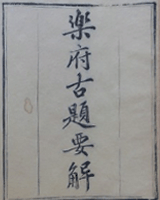 樂府古題要解